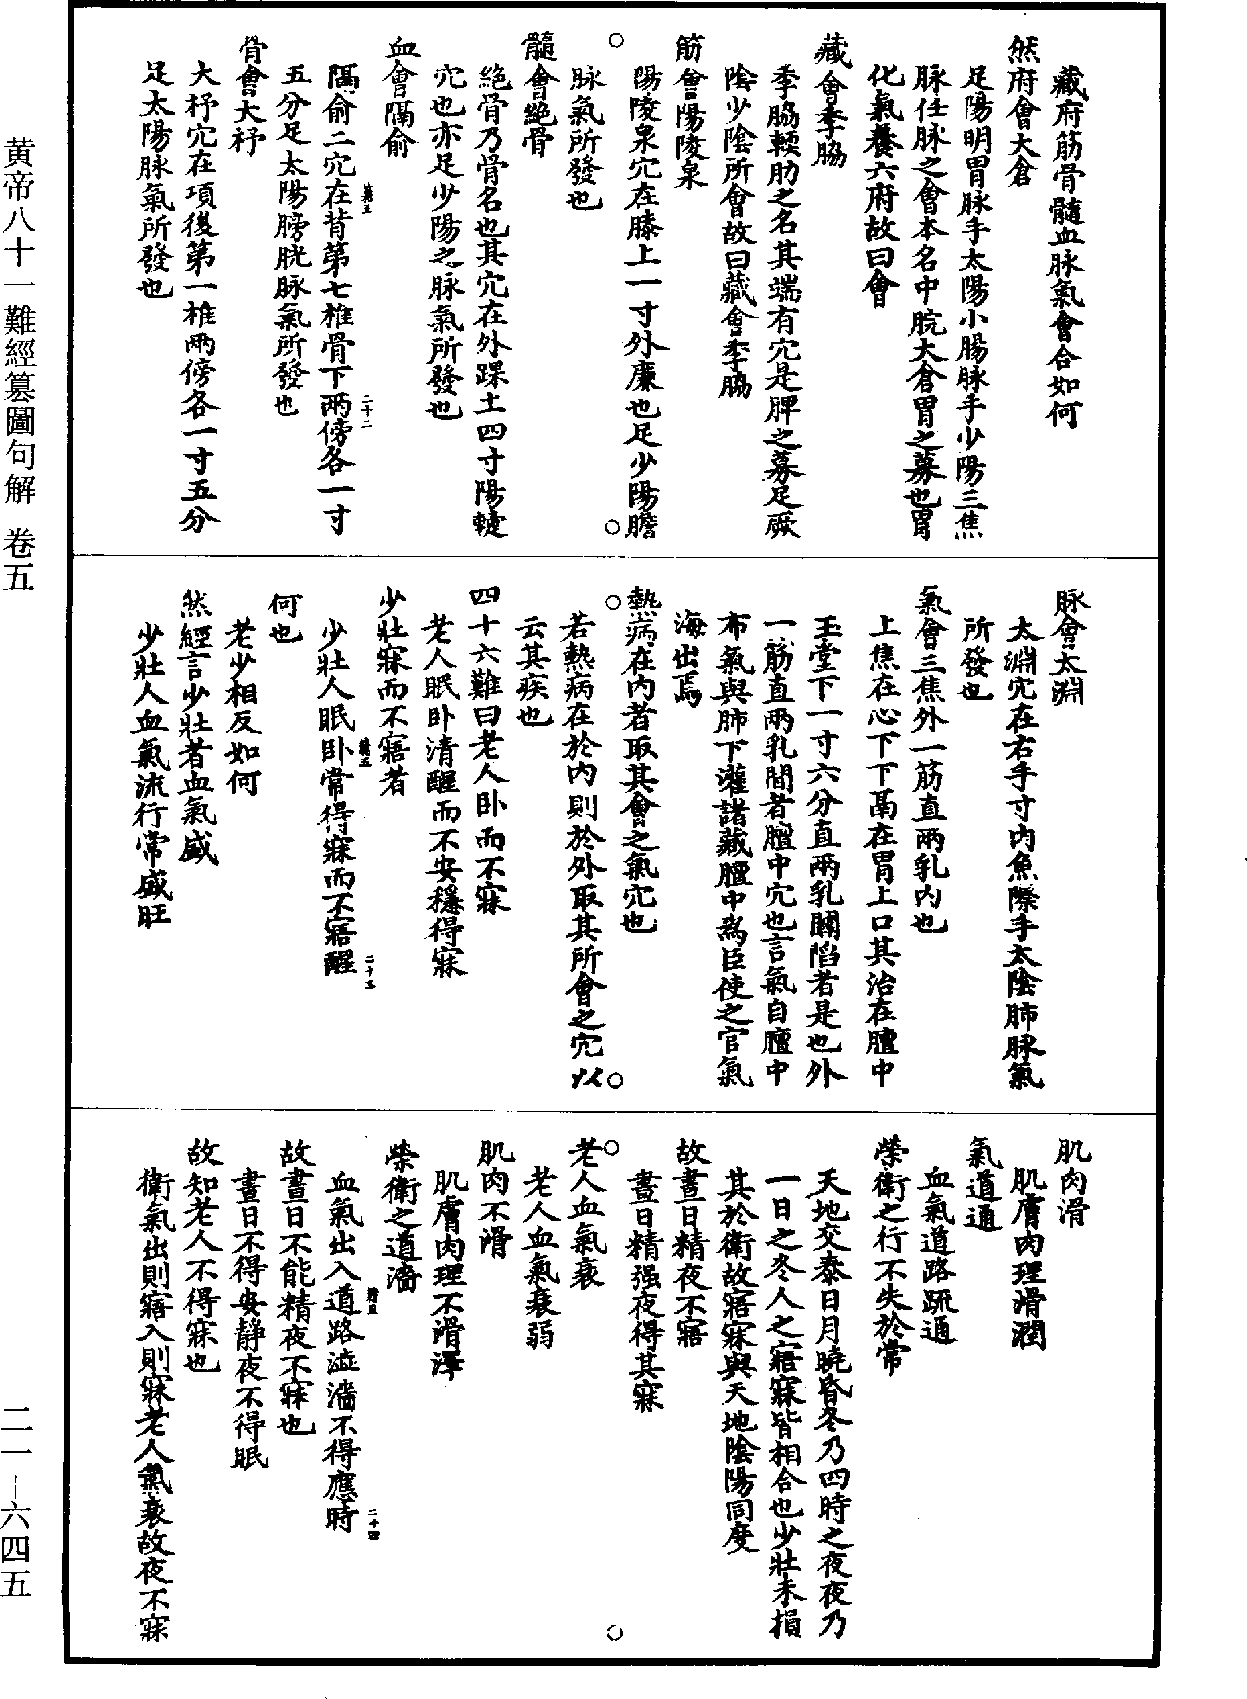 藏府筋骨髓血脉氣會合如何
然府會大倉
足陽明胃脉手太陽小腸脉手少陽三焦
脉任脉之會本名中脘大倉胃之募也胃
化氣養六府故曰會
藏會季脇
季脇輭肋之名其端有穴是脾之募足厥
陰少陰所會故曰藏會季脇
筋會陽陵泉
陽陵泉穴在膝上一寸外廉也足少陽膽
脉氣所發也
髓會絕骨
絕骨乃骨名也其穴在外踝上四寸陽
穴也亦足少陽之脉氣所發也
血會隔俞
隔俞二穴在背第七椎骨下兩傍各一寸
五分足太陽膀胱脉氣所發也
骨會大杼
大杼穴在項後第一椎兩傍各一寸五分
足太陽脉氣所發也
脉會太淵
太淵穴在右手寸內魚際手太陰肺脉氣
所發也
氣會三焦外一筋直兩乳內也
上焦在心下下鬲在胃上口其治在膻中
玉堂下一寸六分直兩乳間陷者是也外
一筋直兩乳間者膻中穴也言氣自膻中
布氣與肺下灌諸藏膻中爲臣使之官氣
海出焉
熱病在內者取其會之氣穴也
若熱病在於內則於外取其所會之穴以
云其疾也
四十六難曰老人卧而不寐
老人眠卧清醒而不安穩得寐
少壯寐而不寤者
少壯人眠卧常得寐而不寤醒
何也
老少相反如何
然經言少壯者血氣盛
少壯人血氣流行常盛旺
肌肉滑
肌膚肉理滑潤
氣道通
血氣道路疏通
榮衛之行不失於常
天地交泰日月曉昏冬乃四時之夜夜乃
一日之冬人之寤寐皆相合也少壯未損
其於衛故寤寐與天地陰陽同度
故晝日精夜不寤
晝日精强夜得其寐
老人血氣衰
老人血氣衰弱
肌肉不滑
肌膚肉理不滑澤
榮衛之道濇
血氣出入道路澁濇不得應時
故晝日不能精夜不寐也
晝日不得安靜夜不得眠
故知老人不得寐也
衛氣出則寤入則寐老人氣衰故夜不寐
黄帝八十一難經纂圖句解 卷五
二一—六四五